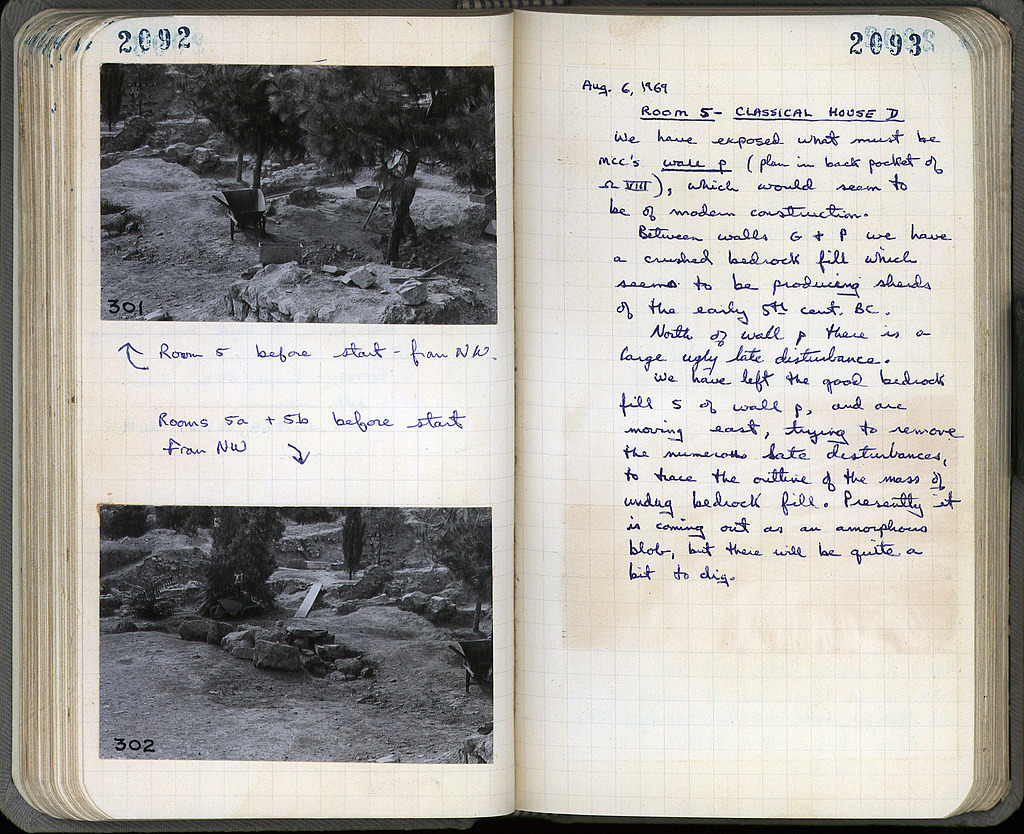 2092
301
↑ Room 5 before start - from NW.
Rooms 5a + 5b before start
from NW ↓
302
2093
Aug. 6, 1969
ROOM 5 - CLASSICAL HOUSE D
We have exposed what must be
McC's wall p (plan in back pocket of
Ω VIII), which would seem to
be of modern construction.
Between walls G + P we have
a crushed bedrock fill which
seems to be producing sherds
of the early 5th cent. BC.
North of wall p there is a
large ugly late disturbance.
We have left the good bedrock
fill S of wall p, and are
moving east, trying to remove
the numerous late disturbances,
to trace the outline of the mass of
undug bedrock fill. Presently it
is coming out as an amorphous
blob, but there will be quite a
bit to dig.